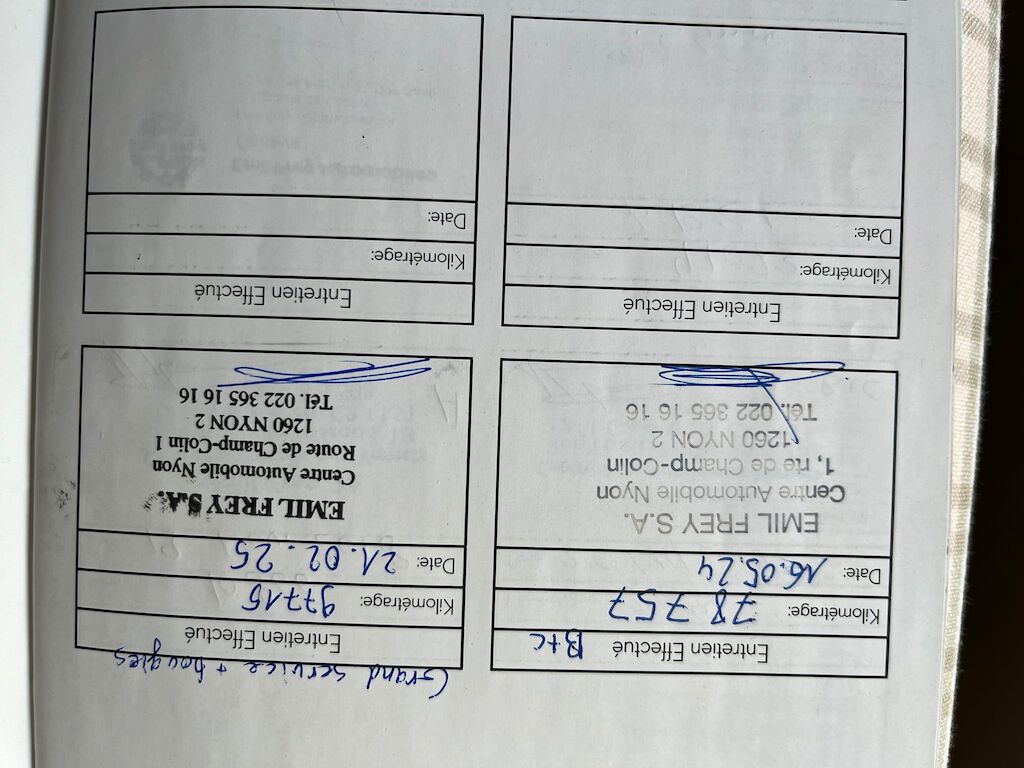 Entretien Effectué B+C
Kilométrage: 78 757
Date: 16.05.24
EMIL FREY S.A.
Centre Automobile Nyon
1, rte de Champ-Colin
1260 NYON 2
Tél. 022 365 16 16
Grand service + bougies
Entretien Effectué
Kilométrage: 97715
Date: 21.02.25
EMIL FREY S.A.
Centre Automobile Nyon
Route de Champ-Colin 1
1260 NYON 2
Tél. 022 365 16 16
Entretien Effectué
Kilométrage:
Date:
Entretien Effectué
Kilométrage:
Date: